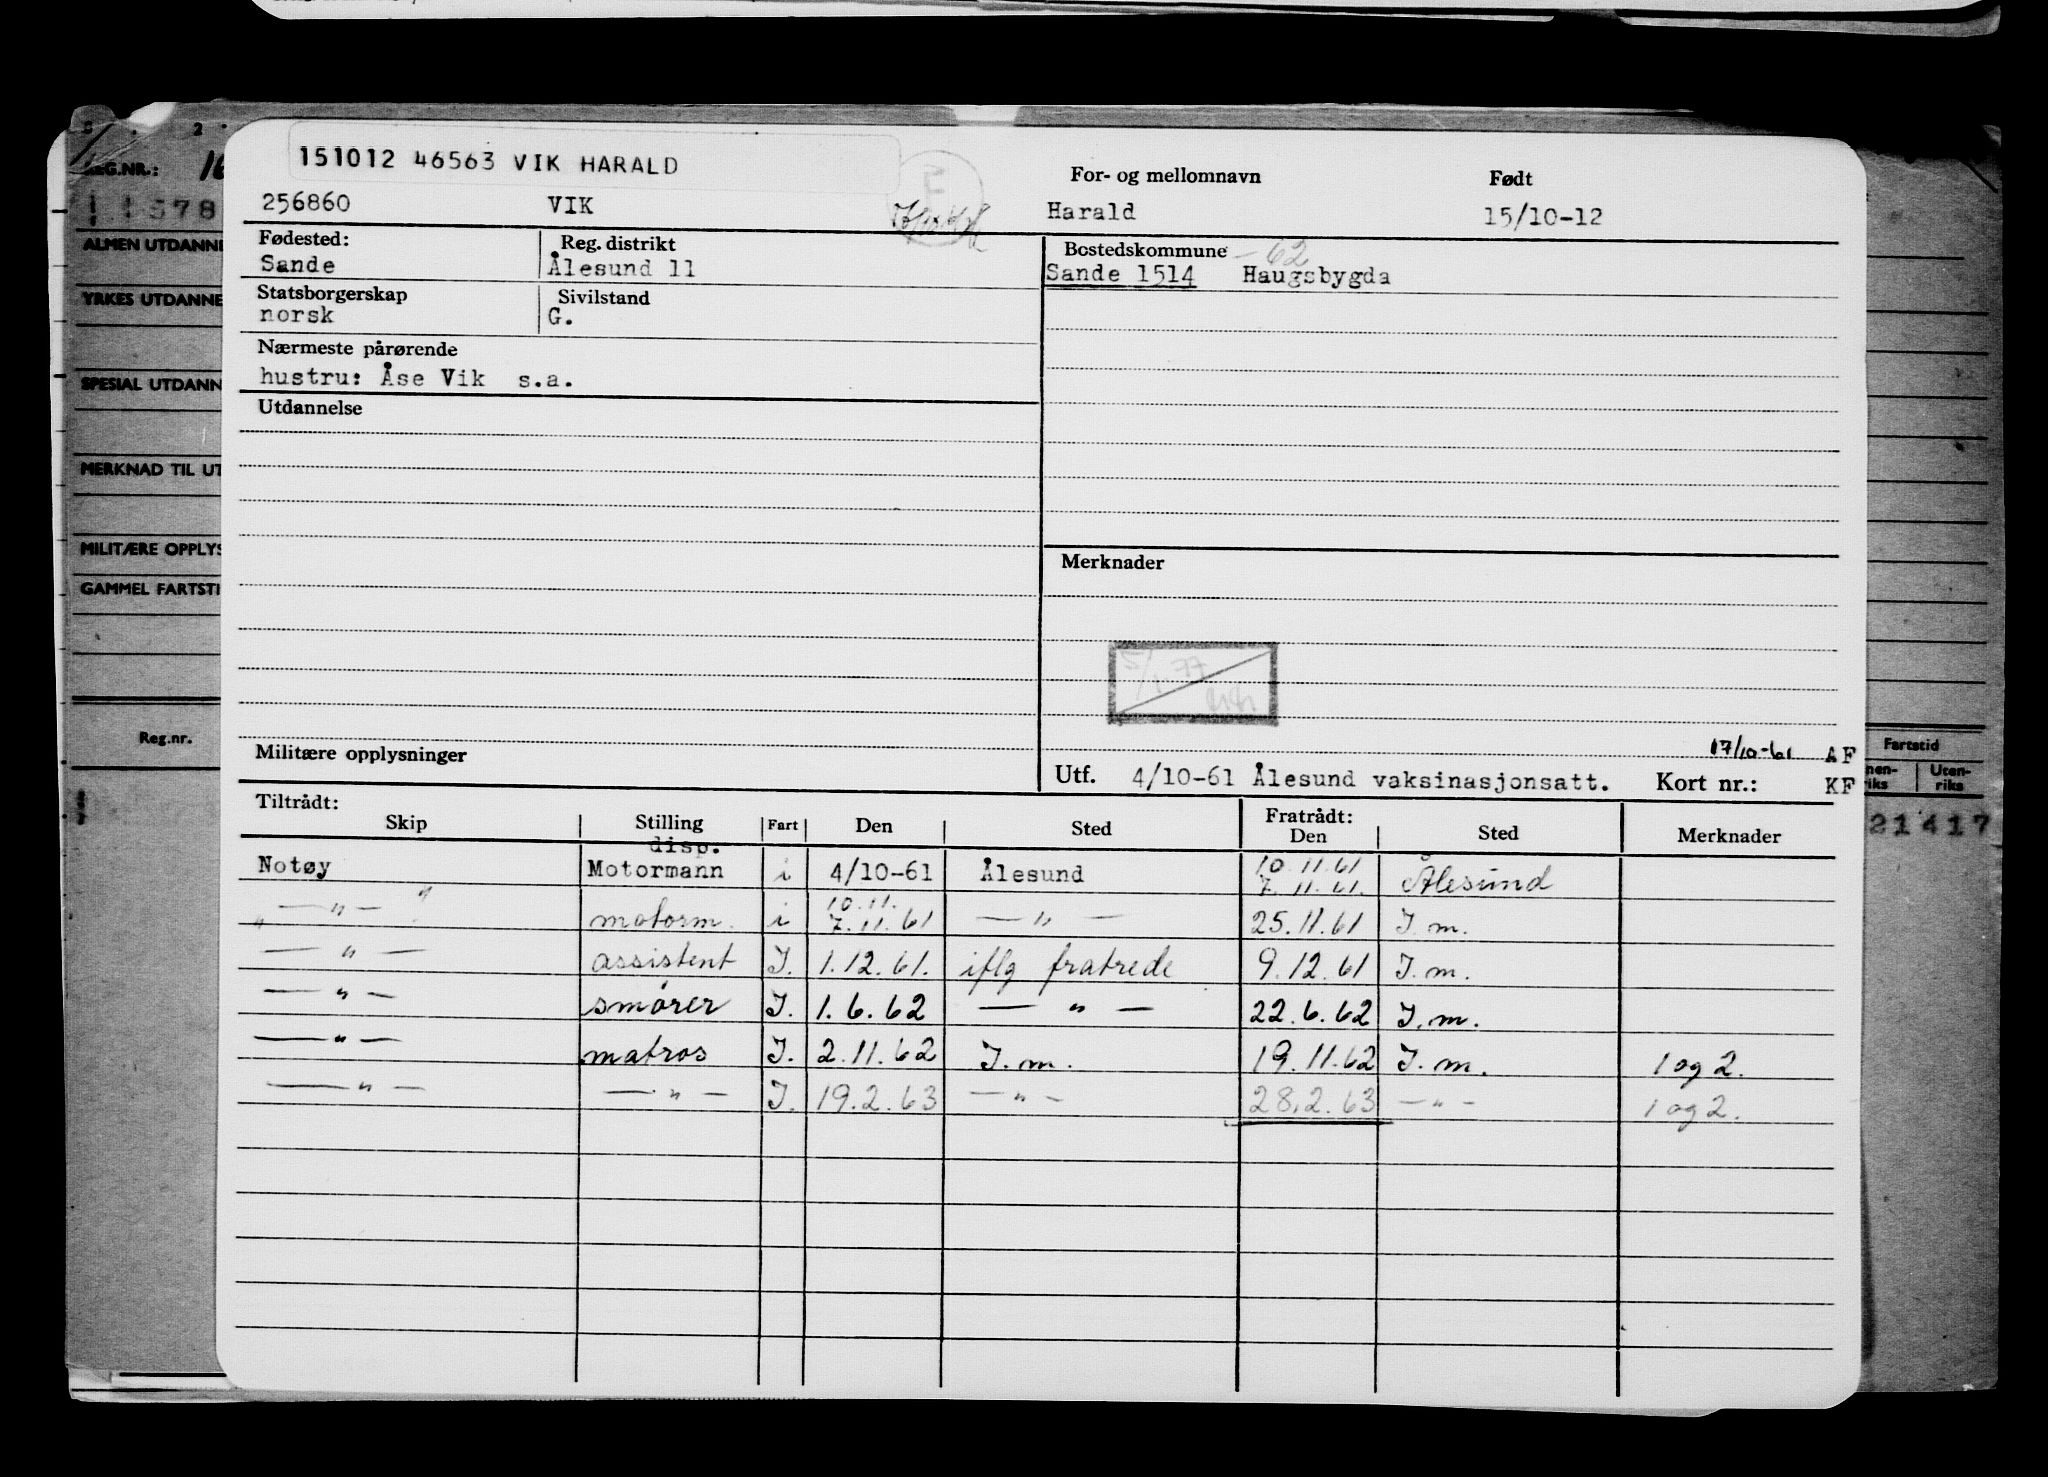 151012 46563 VIK HARALD
256860 VIK
For- og mellomnavn
Harald
Født
15/10-12
Fødested:
Sande
Reg. distrikt
Ålesund 11
Bostedskommune -62
Sande 1514 Haugsbygda
Statsborgerskap
norsk
Sivilstand
G.
Nærmeste pårørende
hustru: Åse Vik s.a.
Utdannelse
Merknader
5/1.77
Militære opplysninger
17/10-61 AF
Utf. 4/10-61 Ålesund vaksinasjonsatt. Kort nr.: KF
Tiltrådt: Fratrådt:
Skip Stilling Fart Den Sted Den Sted Merknader
disp.
Notøy Motormann i 4/10-61 Ålesund 10.11.61 7.11.61. Ålesund
— " — motorm. i 10.11. 7.11.61 — " — 25.11.61 I.m.
— " — assistent I. 1.12.61. iflg fratrede 9.12.61 I.m.
— " — smörer I. 1.6.62 — " — 22.6.62 I.m.
— " — matros I. 2.11.62 I.m. 19.11.62 I.m. 1 og 2.
— " — — " — I. 19.2.63 — " — 28.2.63 — " — 1 og 2.
REG.NR.: 16
11578
ALMEN UTDANNE
YRKES UTDANNE
SPESIAL UTDANN
MERKNAD TIL UT
MILITÆRE OPPLYS
GAMMEL FARTSTI
Reg.nr.
Fartstid
nen-riks Uten-riks
21417